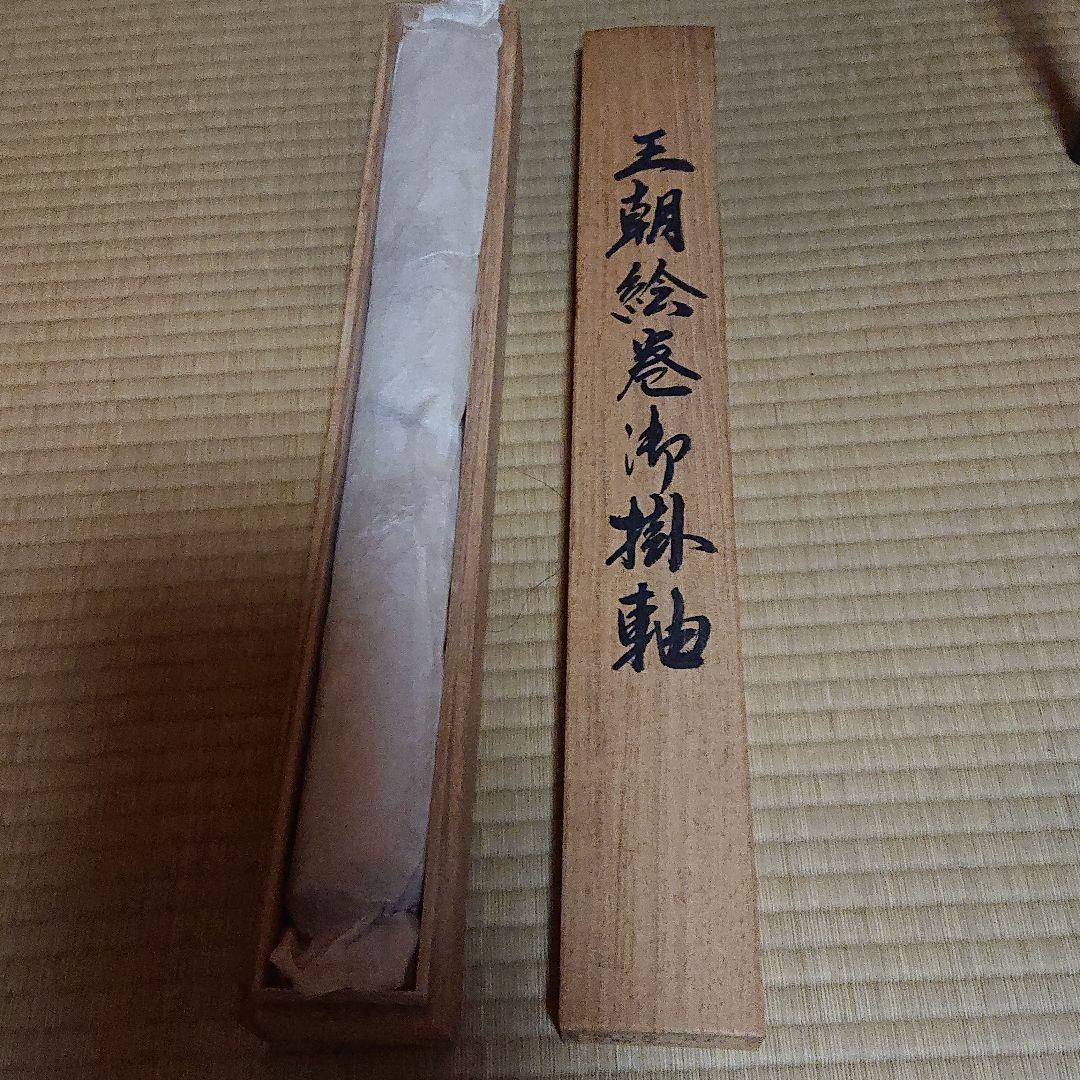 王朝絵巻御掛軸